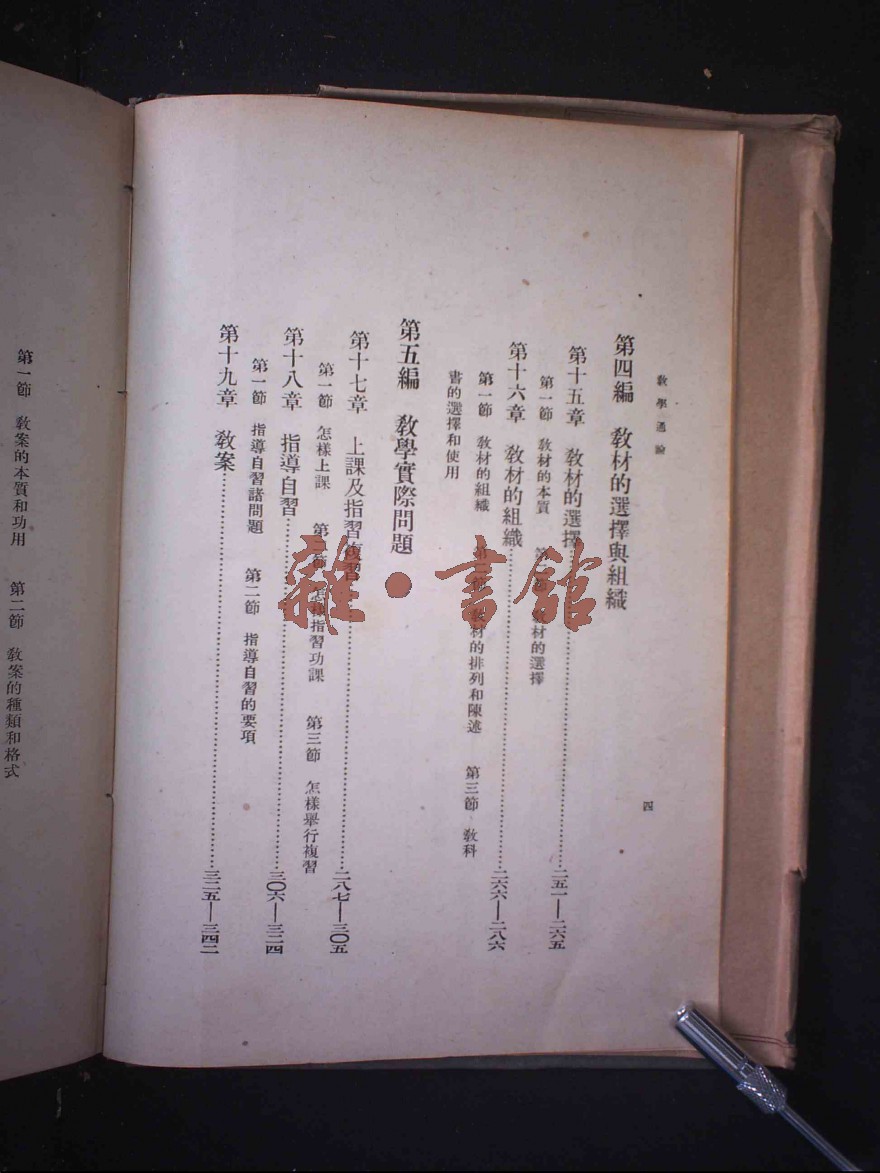 教學通論
四
第四編 教材的選擇與組織
第十五章 教材的選擇……二五一—二六五
第一節 教材的本質 第二節 教材的選擇
第十六章 教材的組織……二六六—二八六
第一節 教材的組織 第二節 教材的排列和陳述 第三節 教科
書的選擇和使用
第五編 教學實際問題
第十七章 上課及指習複習……二八七—三〇五
第一節 怎樣上課 第二節 怎樣指習功課 第三節 怎樣舉行複習
第十八章 指導自習……三〇六—三二四
第一節 指導自習諸問題 第二節 指導自習的要項
第十九章 教案……三二五—三四二
第一節 教案的本質和功用 第二節 教案的種類和格式
雜·書館